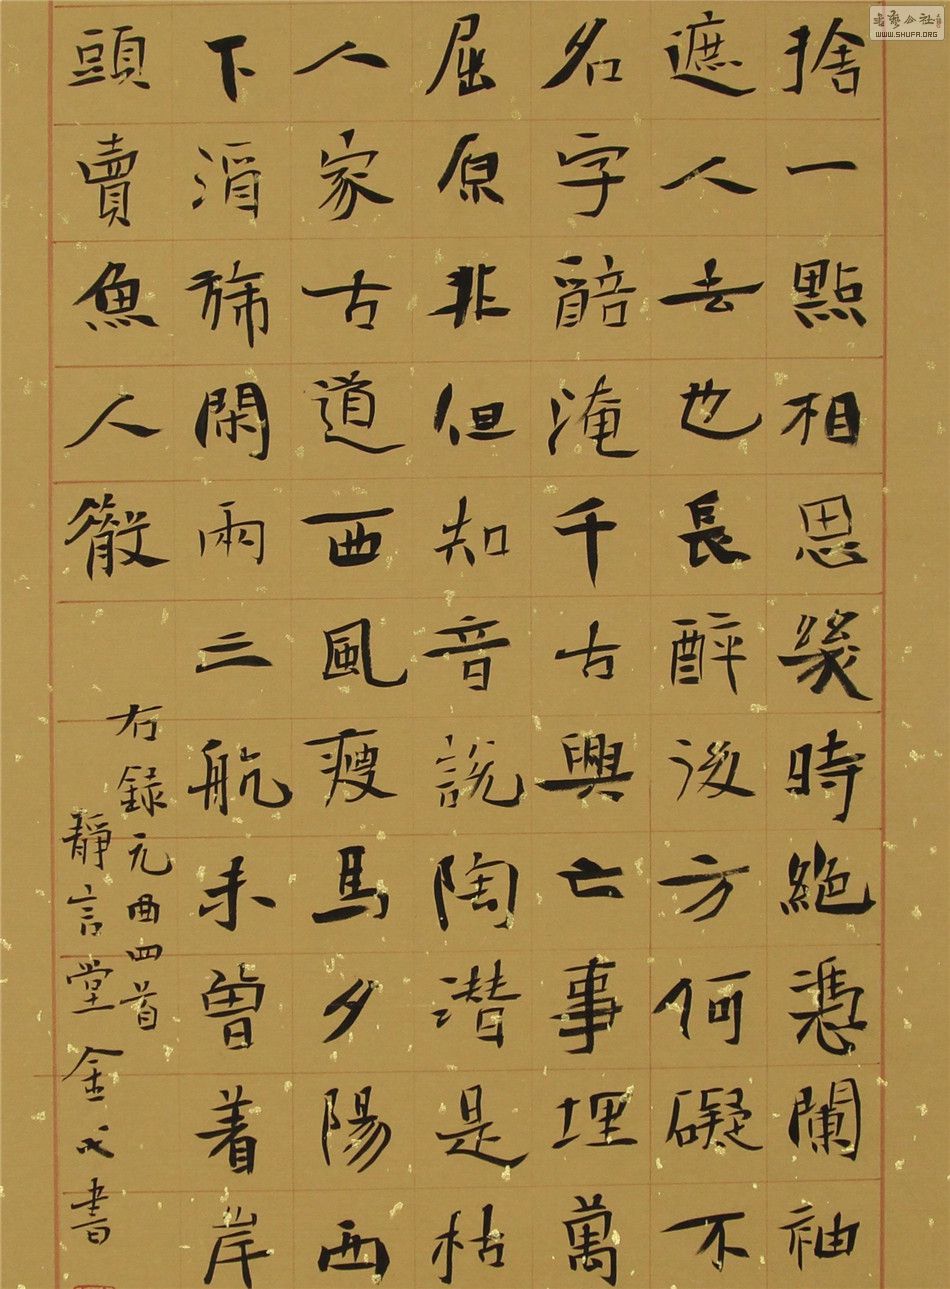 書藝公社
WWW.SHUFA.ORG
捨一點相思幾時絶憑闌袖
遮人去也長醉後方何礙不
名字醅淹千古興亡事埋萬
屈原非但知音說陶潜是枯
人家古道西風瘦馬夕陽西
下酒旆閑兩三航未曾着岸
頭賣魚人散
右録元曲四首
靜言堂金書